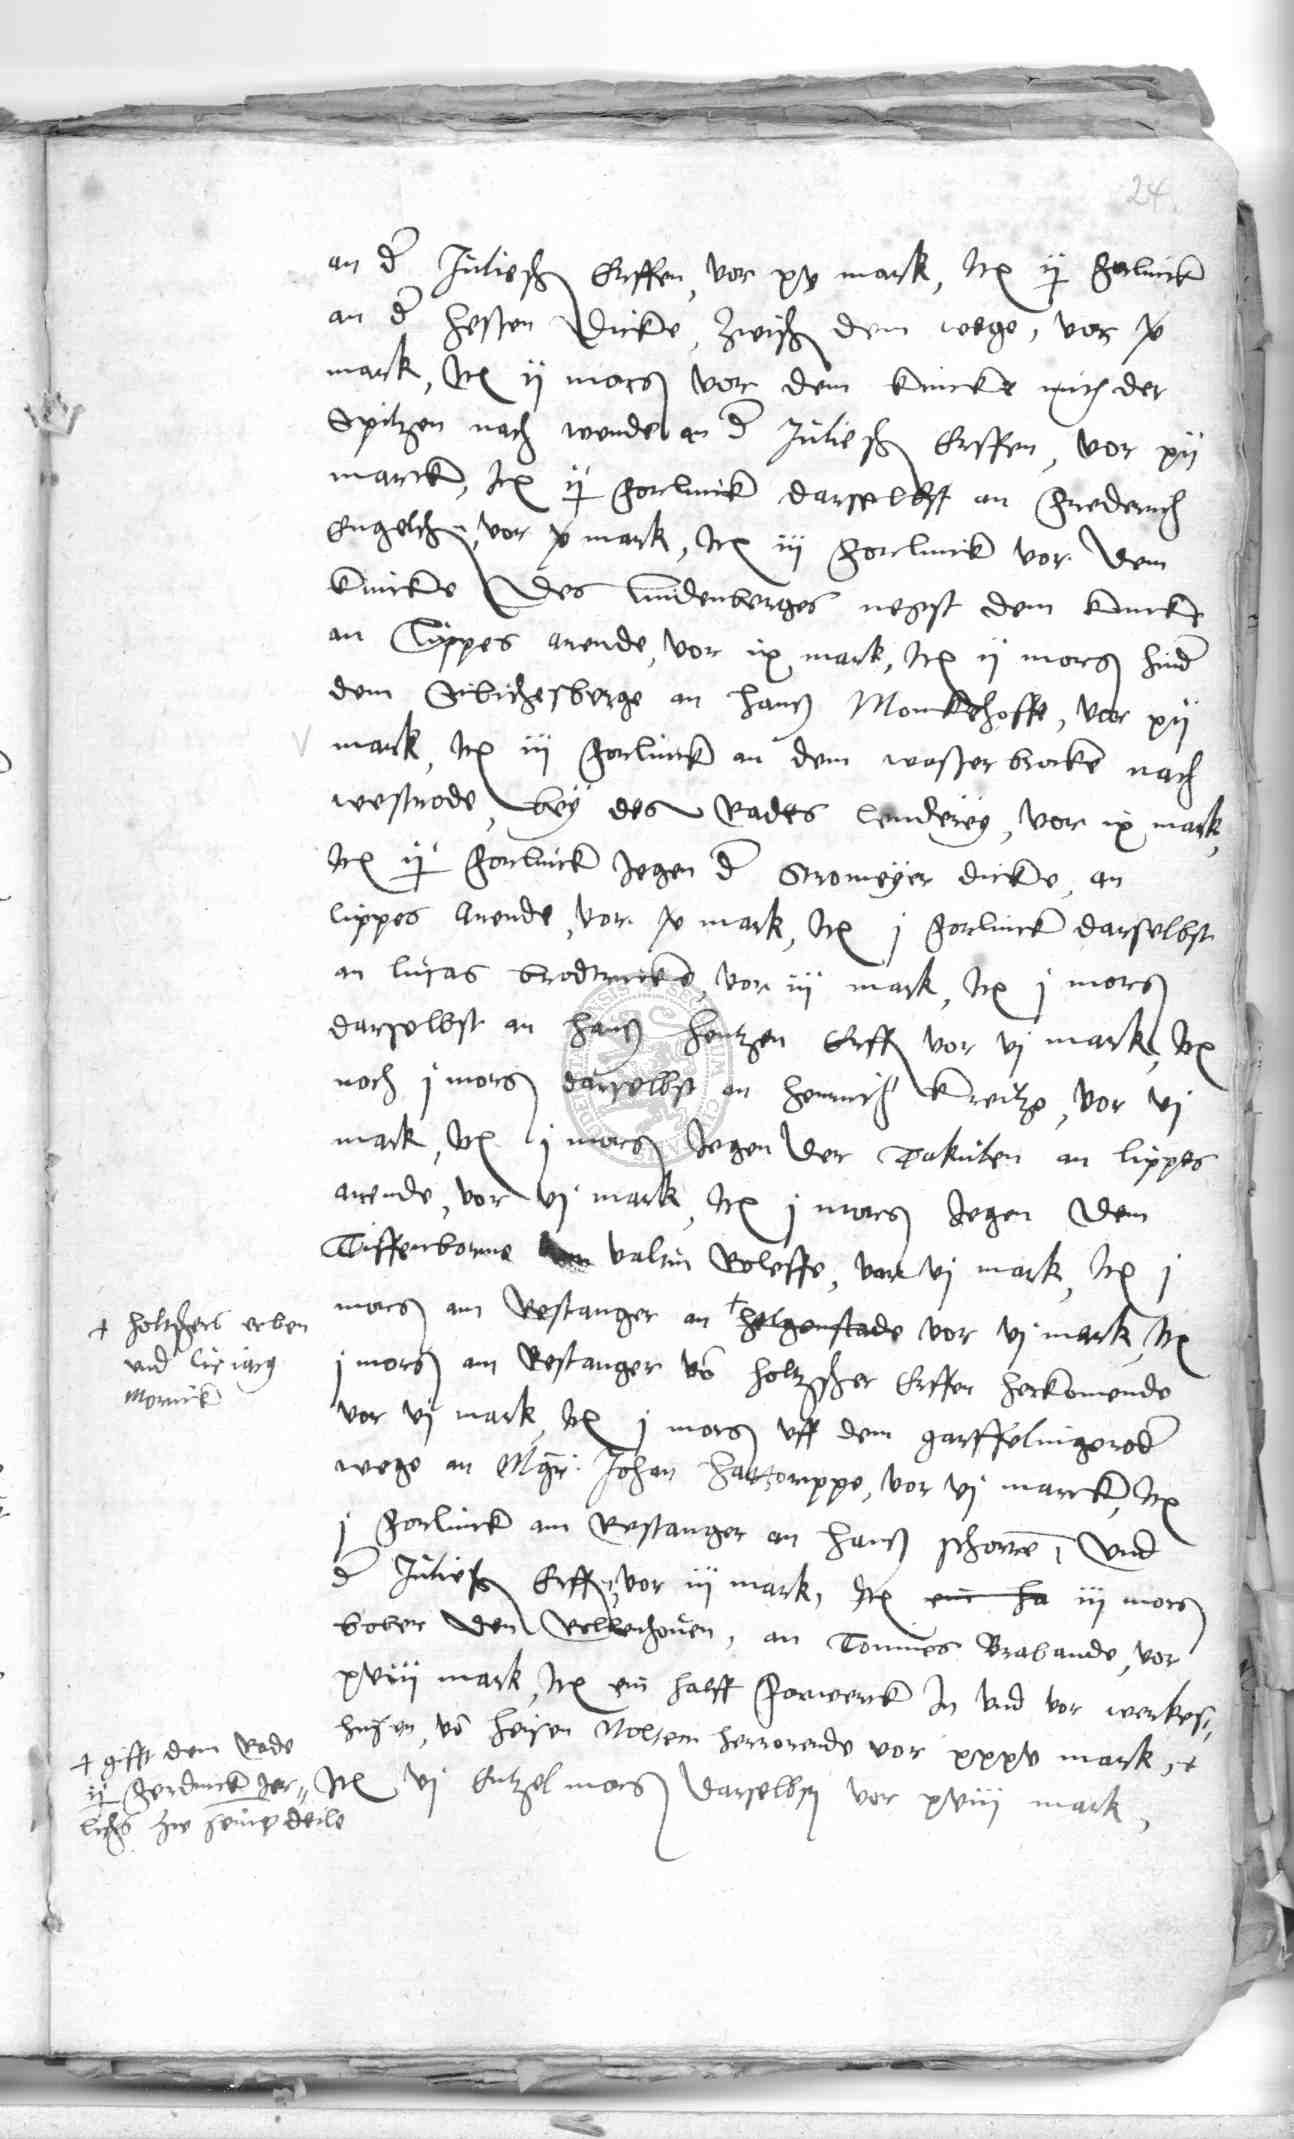 24.
an d' Juliesch Erffen, vor xv mark, Itē ij forlinck
an d' hessen Dicke, zwisch dem wege, vor x
mark, Itē ij morg vor dem knicke mith der
Spitzen nach wende an d' Juliesch Erffen, vor xij
marck, Itē ij forlinck darselbst an Frederich
Engelch, vor x mark, Itē iij forlinck vor dem
knicke des lindenberges negst dem knicke
an Lippes arende, vor ix mark, Itē ij morg hind'
dem Sibichesberge an Hans Monkehoffe, vor xij
mark, Itē iij forlinck an dem wester brocke nach
westrode, bey des Rades lenderey, vor ix mark,
Itē ij forlinck Jegen d' Stromeyer dicke, an
lippes Arende, vor x mark, Itē j forlinck darselbst
an lucas brodtrucke, vor iij mark, Itē j morg
darselbst an Hans Hentzen Erff vor vj mark, Itē
noch j morg darselbst an Henrich Kreitze, vor vj
mark, Itē j morg Jegen der Takulen an lippes
arende, vor vj mark, Itē j morg Jegen dem
Tiffenborne valtin Roleffe, vor vj mark, Itē j
morg am Restanger an † helgenstade vor vj mark, Itē
j morg am Restanger vō holtzscher Erffen herkomende
vor vj mark, Itē j morg uff dem garffelingerod'
wege an Mgri: Johan Hattorppe, vor vj marck, Itē
j forlinck am Restanger an Hans schorre, und
d' Juliesch Erffen, vor iij mark, Itē ein ha iij morg
bober den Rellerhouen, an Tonnies Brabande, vor
xviij mark, Itē ein halff forwerck In und vor werkes,
husen, vō heisen Noltem herrorende vor xxxv mark, †
Itē vj Entzel morg darselbst vor xviij mark,
† holtzscher erben
und
Mornick
† gifft dem Rade
ij ferdinck Jer,,
lichs zu seinp deile